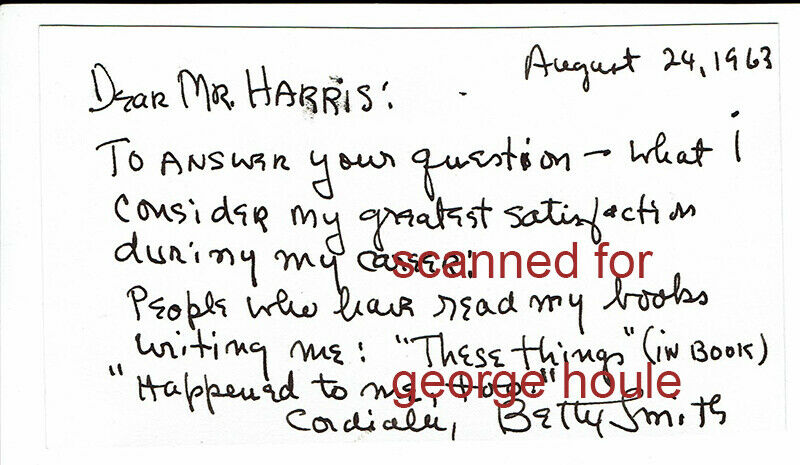 August 24, 1963
Dear Mr. Harris:
To answer your question – what i
consider my greatest satisfaction
during my career:
scanned for
People who have read my books
writing me: "These things" (in book)
"Happened to me, too."
george houle
Cordially, Betty Smith